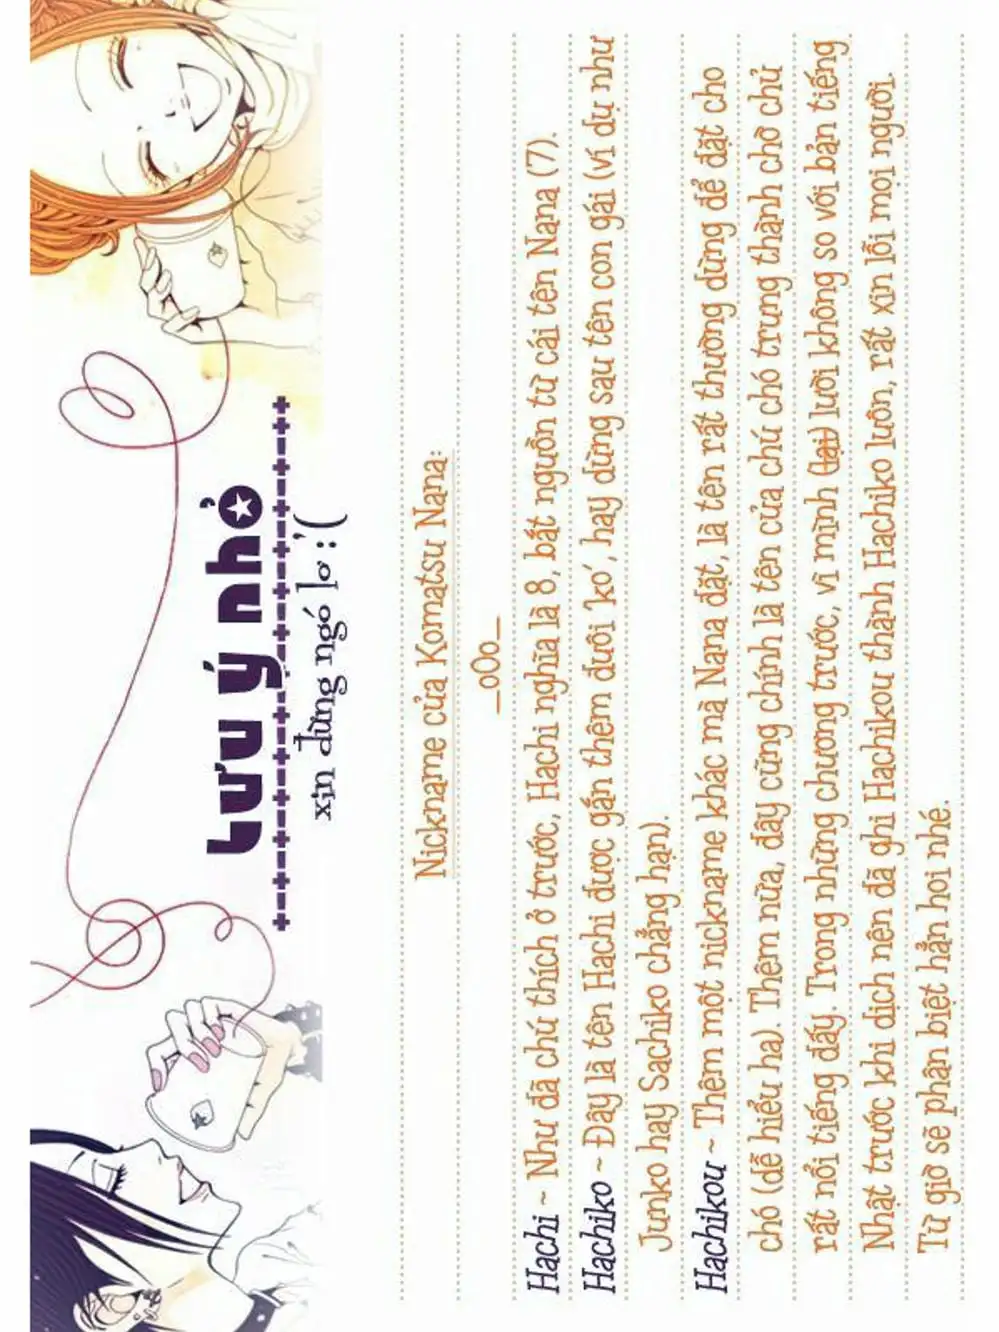 Lưu ý nhỏ
xin đừng ngó lơ :'(
Nickname của Komatsu Nana:
_oOo_
Hachi ~ Như đã chú thích ở trước, Hachi nghĩa là 8, bắt nguồn từ cái tên Nana (7).
Hachiko ~ Đây là tên Hachi được gắn thêm đuôi ‘ko’, hay dùng sau tên con gái (ví dụ như
Junko hay Sachiko chẳng hạn).
Hachikou ~ Thêm một nickname khác mà Nana đặt, là tên rất thường dùng để đặt cho
chó (dễ hiểu ha). Thêm nữa, đây cũng chính là tên của chú chó trung thành chờ chủ
rất nổi tiếng đấy. Trong những chương trước, vì mình (tại) lười không so với bản tiếng
Nhật trước khi dịch nên đã ghi Hachikou thành Hachiko luôn, rất xin lỗi mọi người.
Từ giờ sẽ phân biệt hẳn hoi nhé.